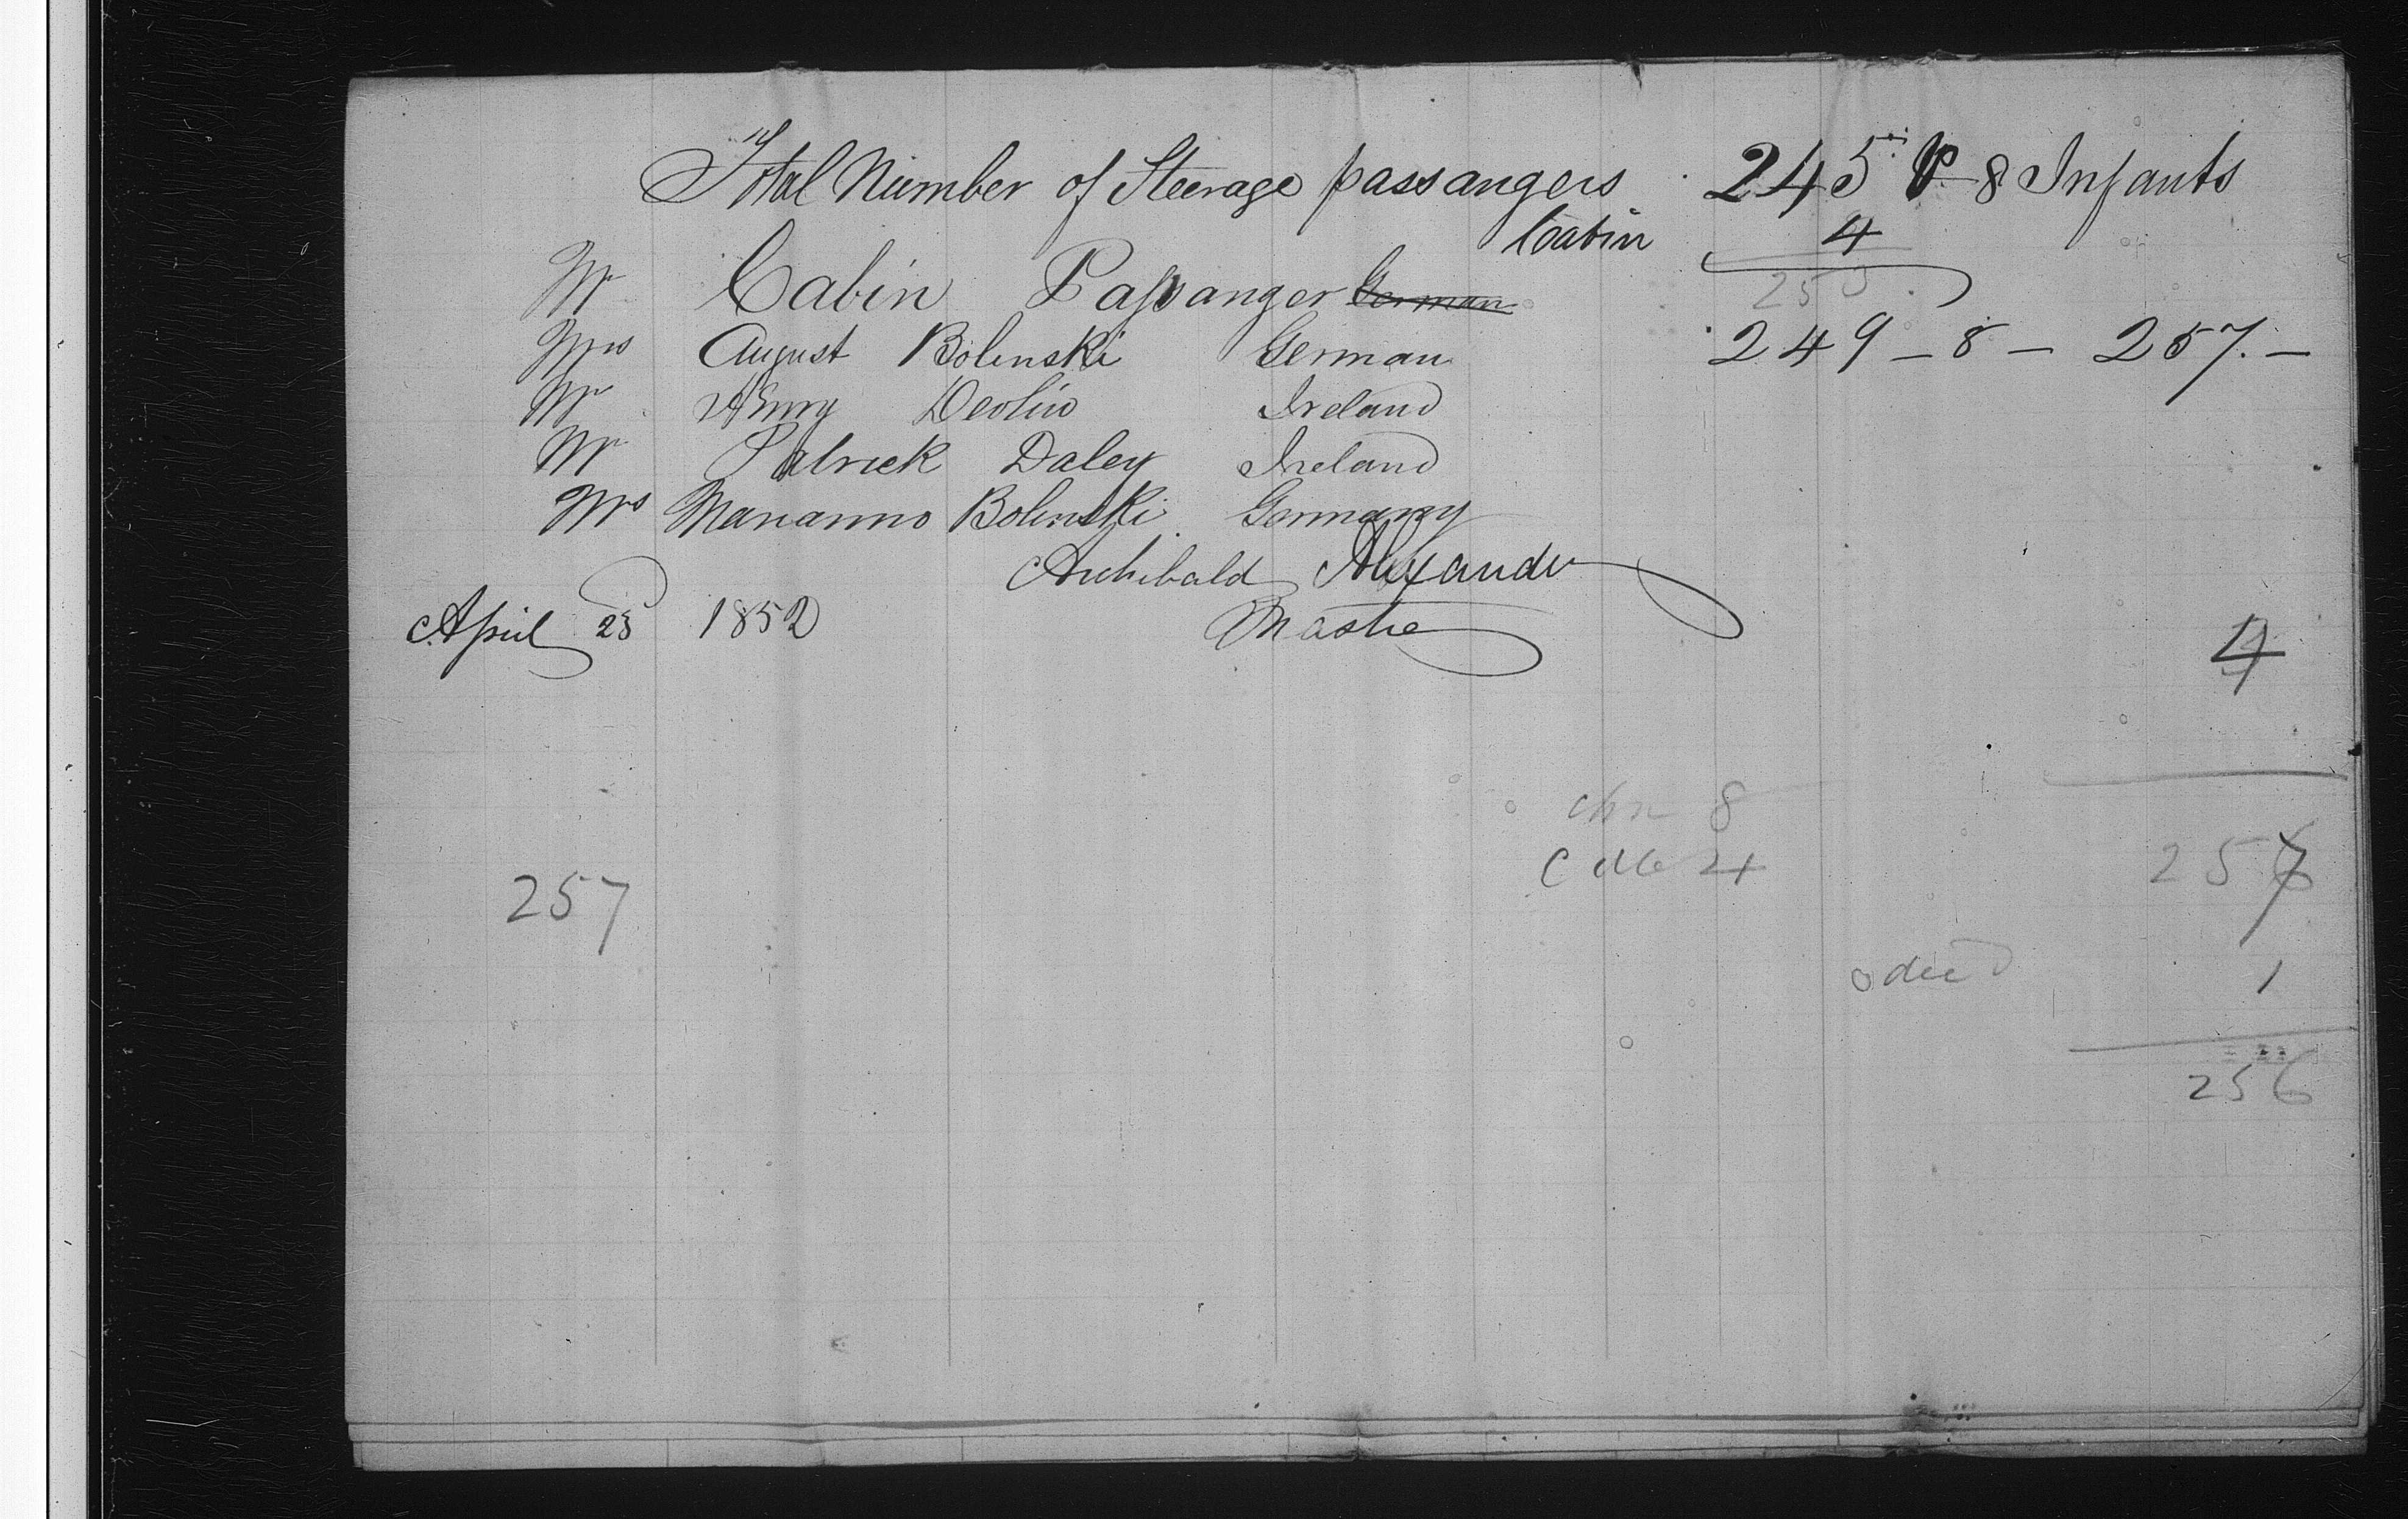 Total Number of Steerage passangers 245 P 8 Infants
Cabin 4
Mr Cabin Passanger German
253
Mrs August Bolenski German 249 - 8 - 257. -
Mr Henry Devlin Ireland
Mr Patrick Daley Ireland
Mrs Marianno Bolenski Germany
Archibald Alexander
April 25 1852 Master
4
chn 8
C 4
257
257
died 1
256